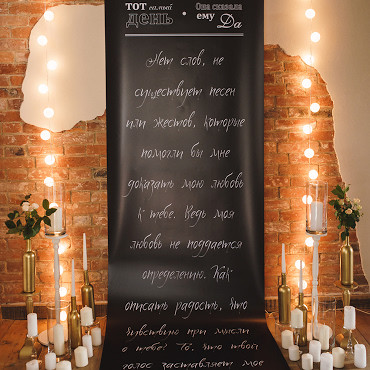 ТОТ самый
день
•
Она сказала
ему
Да
Нет слов, не
существует песен
или жестов, которые
помогли бы мне
доказать мою любовь
к тебе. Ведь моя
любовь не поддается
определению. Как
описать радость, что
чувствую при мысли
о тебе? То, что твой
голос заставляет мое